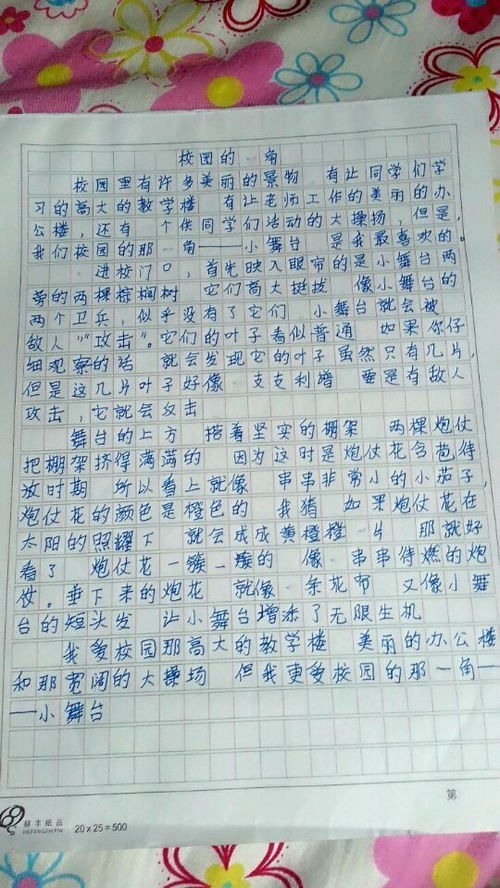 校园的一角
校园里有许多美丽的景物 有让同学们学
习的高大的教学楼 有让老师工作的美丽的办
公楼，还有 个供同学们活动的大操场，但是，
我们校园的那一角——小舞台 是我最喜欢的。
进校门口，首先映入眼帘的是小舞台两
旁的两棵棕榈树 它们高大挺拔 像小舞台的
两个卫兵，似乎没有了它们 小舞台就会被
敌人“攻击”。它们的叶子看似普通 如果你仔
细观察的话 就会发现它的叶子虽然只有几片，
但是这几片叶子好像 支支利 要是有敌人
攻击，它就会反击
舞台的上方 搭着坚实的棚架 两棵炮仗
把棚架挤得满满的 因为这时是炮仗花含苞待
放时期 所以看上就像 串串非常小的小茄子，
炮仗花的颜色是橙色的 我猜 如果炮仗花在
太阳的照耀下 就会成成黄橙橙一片 那就好
看了 炮仗花一簇一簇的 像一串串待燃的炮
仗。垂下来的炮花 就像一条花布 又像小舞
台的短头发 让小舞台增添了无限生机
我爱校园那高大的教学楼 美丽的办公楼
和那宽阔的大操场 但我更爱校园的那一角—
—小舞台
第
纸品
20x25=500